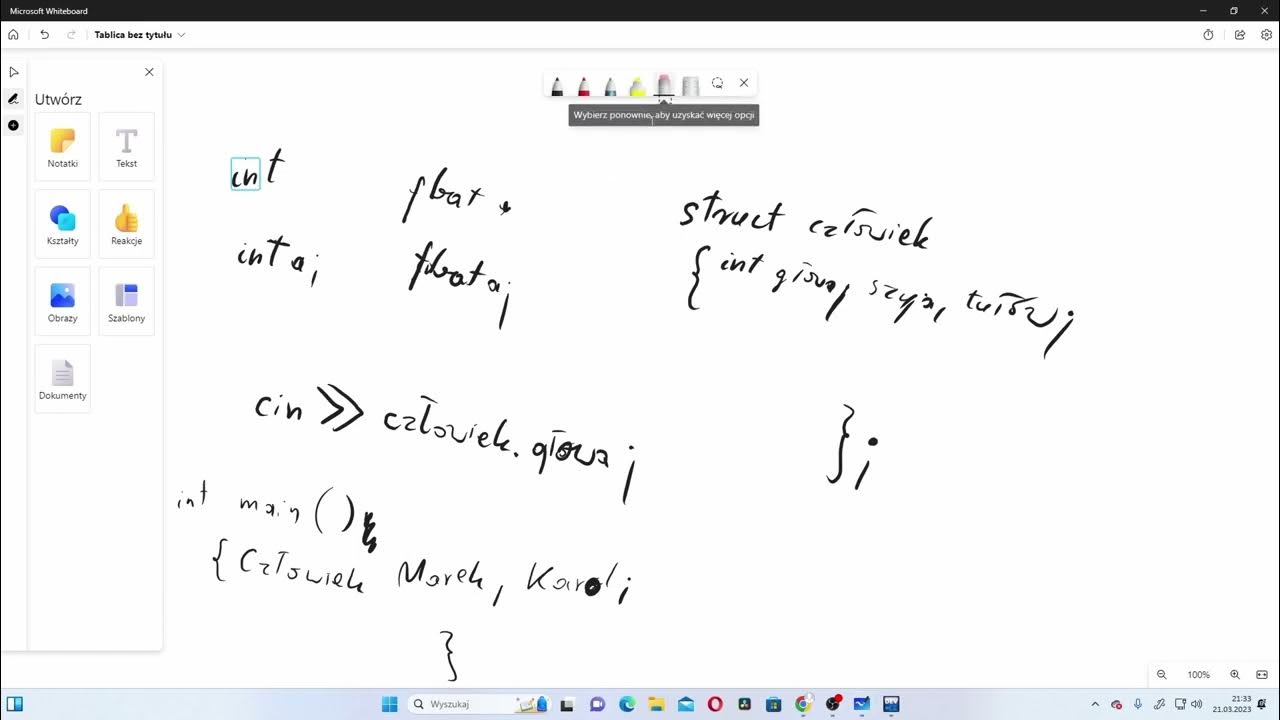 Microsoft Whiteboard
Tablica bez tytułu
Utwórz
Notatki
Tekst
Kształty
Reakcje
Obrazy
Szablony
Dokumenty
Wybierz ponownie, aby uzyskać więcej opcji
int
float
int a;
float a;
struct człowiek
{ int głowa, szyja, tułów;
};
cin >> człowiek.głowa;
int main()
{ Człowiek Marek, Karol;
}
100%
Wyszukaj
DEV
21:33
21.03.2023